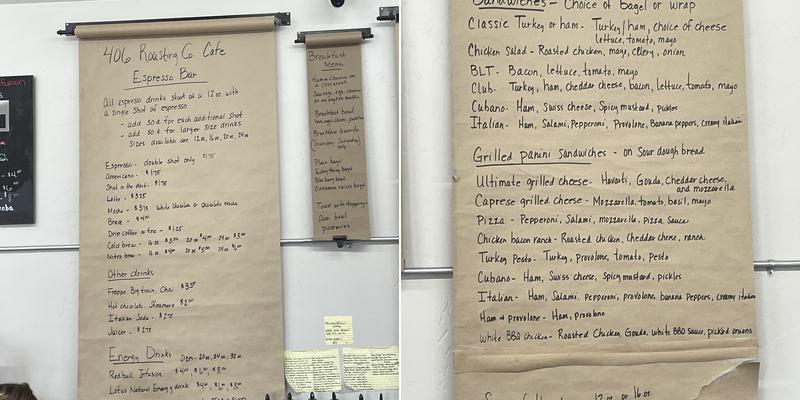 406 Roasting Co Cafe
Espresso Bar
All espresso drinks start at a 12oz with
a single shot of espresso.
- add 50¢ for each additional shot
- add 50¢ for larger size drinks
Sizes available are 12oz, 16oz, 20oz, 24oz
Espresso - double shot only $1.75
Americano - $1.75
Shot in the dark - $1.75
Latte - $3.25
Mocha - $3.75 White chocolate or Chocolate Mocha
Breve - $4.00
Drip coffee or tea - $1.25
Cold brew - 16oz $3.00 20oz $4.00 24oz $5.00
Nitro brew - 16oz $4.00 20oz $5.00 24oz $6.00
Other drinks
Frappe, Big train, Chai $3.50
Hot chocolate, Steamers $2.00
Italian Soda - $2.75
Juices - $2.75
Energy Drinks Sizes- 20oz, 24oz, 32oz
Redbull Infusion $4.00, $6.00, $8.00
Lotus Natural Energy drink $4.00, $6.00, $8.00
Breakfast
Menu
Ham & Cheese on
a croissant
Sausage, egg, cheese
on an english muffin
Breakfast bowl
Breakfast burrito
(Thursday - Saturday)
only
Plain bagel
Everything bagel
Blueberry bagel
Cinnamon raisin bagel
Toast with toppings
Acai bowl
parfaits
Sandwiches - Choice of Bagel or Wrap
Classic Turkey or ham - Turkey/ham, choice of cheese
lettuce, tomato, mayo
Chicken Salad - Roasted chicken, mayo, cellery, onion
BLT - Bacon, lettuce, tomato, mayo
Club - Turkey, ham, cheddar cheese, bacon, lettuce, tomato, mayo
Cubano - Ham, Swiss cheese, Spicy mustard, pickles
Italian - Ham, Salami, Pepperoni, Provolone, Banana peppers, creamy italian
Grilled panini sandwiches - on Sour dough bread
Ultimate grilled cheese - Havarti, Gouda, Cheddar cheese,
and mozzarella
Caprese grilled cheese - Mozzarella, tomato, basil, mayo
Pizza - Pepperoni, Salami, mozzarella, Pizza sauce
Chicken bacon ranch - Roasted chicken, cheddar chese, ranch
Turkey Pesto - Turkey, provolone, tomato, Pesto
Cubano - Ham, Swiss cheese, Spicy mustard, pickles
Italian - Ham, Salami, Pepperoni, provolone, banana Peppers, creamy italian
Ham & provolone - Ham, provolone
White BBQ Chicken - Roasted Chicken, Gouda, white BBQ sauce, pickled onions
12oz or 16oz